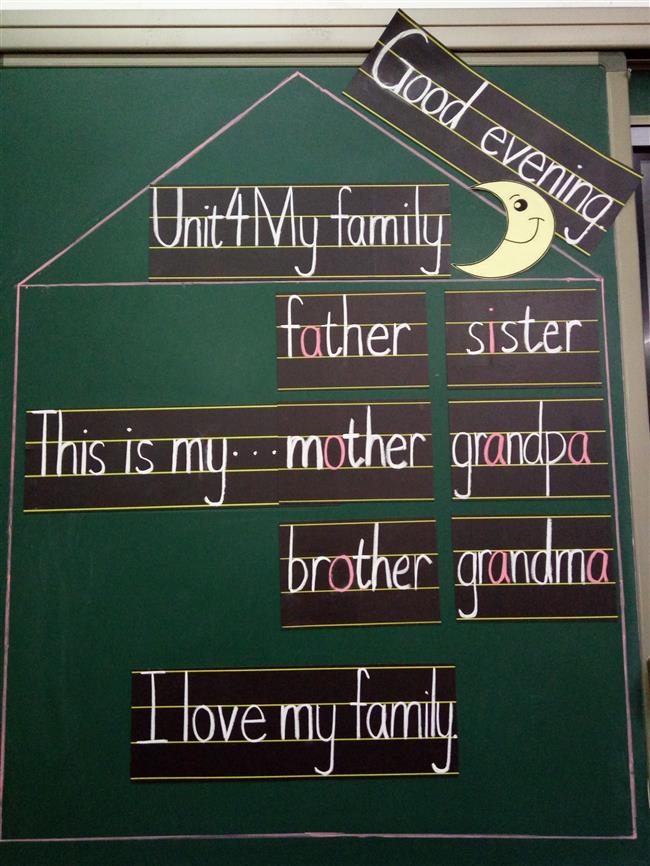 Good evening.
Unit4 My family
father sister
This is my··· mother grandpa
brother grandma
I love my family.